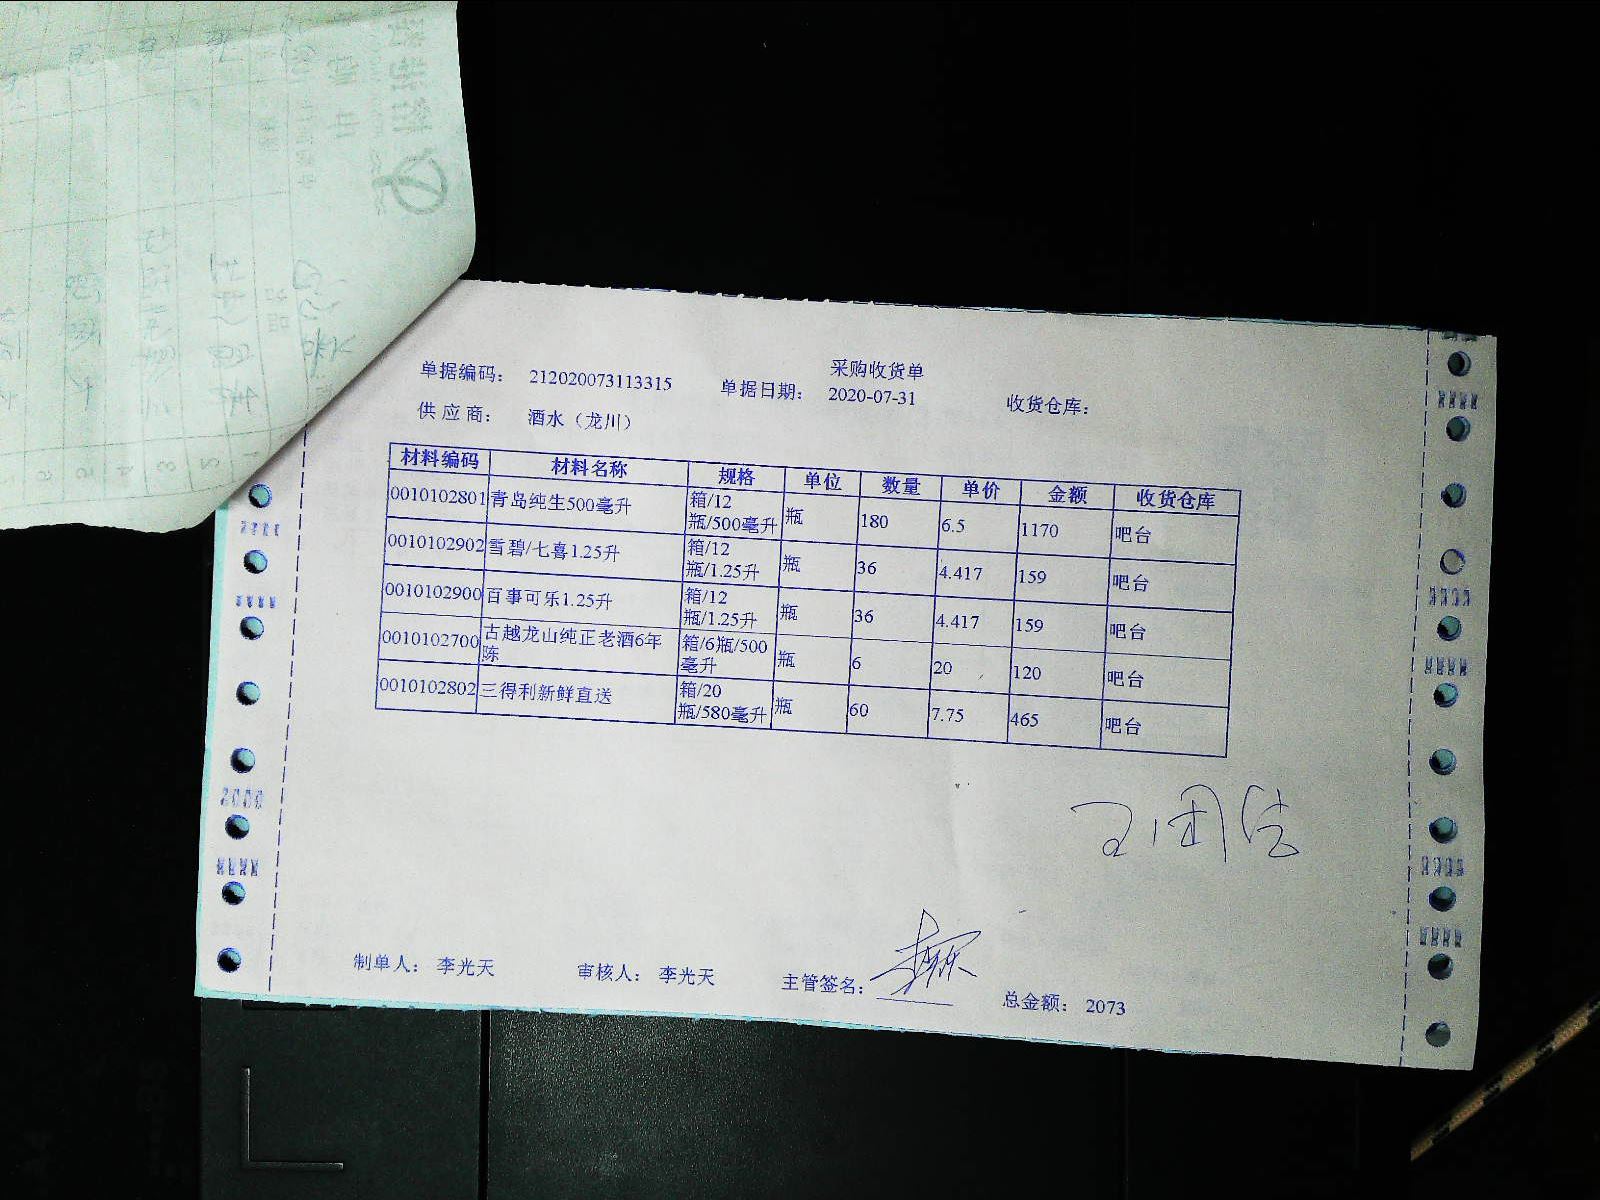 采购收货单
单据编码： 212020073113315 单据日期： 2020-07-31 收货仓库：
供 应 商： 酒水（龙川）
材料编码 材料名称 规格 单位 数量 单价 金额 收货仓库
0010102801 青岛纯生500毫升 箱/12瓶/500毫升 瓶 180 6.5 1170 吧台
0010102902 雪碧/七喜1.25升 箱/12瓶/1.25升 瓶 36 4.417 159 吧台
0010102900 百事可乐1.25升 箱/12瓶/1.25升 瓶 36 4.417 159 吧台
0010102700 古越龙山纯正老酒6年陈 箱/6瓶/500毫升 瓶 6 20 120 吧台
0010102802 三得利新鲜直送 箱/20瓶/580毫升 瓶 60 7.75 465 吧台
制单人： 李光天 审核人： 李光天 主管签名： 总金额： 2073